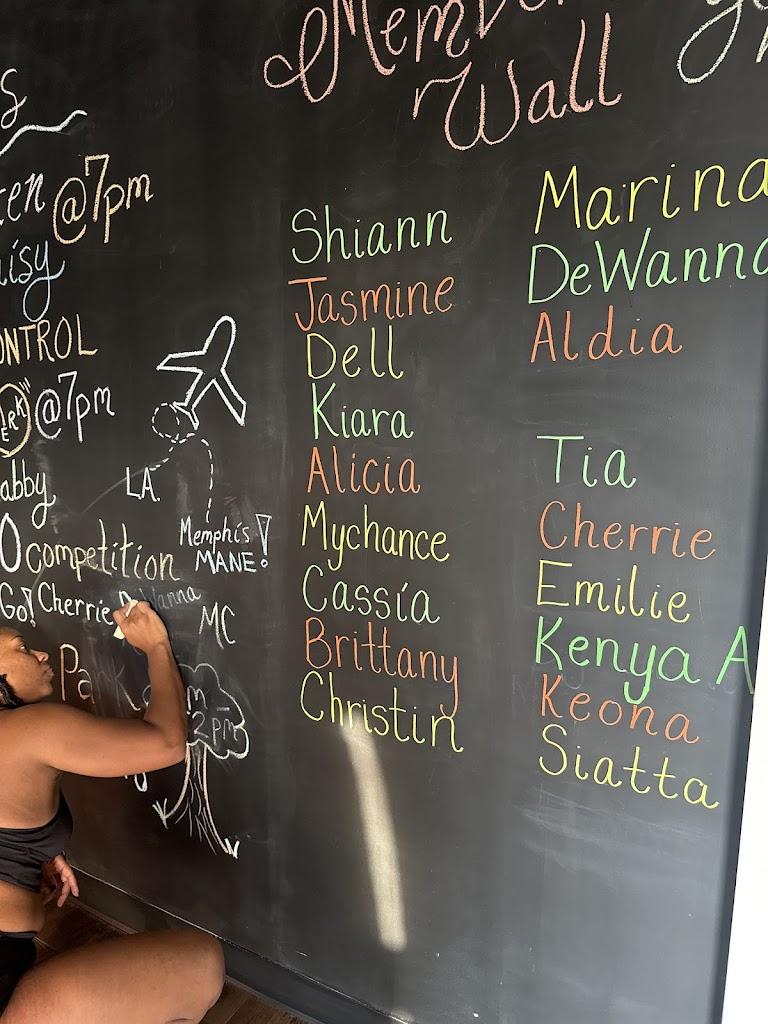 Member
Wall
@7pm
CONTROL
@7pm
LA.
Memphis
MANE!
competition
Go! Cherrie DeWanna
MC
Park
2pm
Shiann
Jasmine
Dell
Kiara
Alicia
Mychance
Cassía
Brittany
Christin
Marina
DeWanna
Aldia
Tia
Cherrie
Emilie
Kenya A
Keona
Siatta